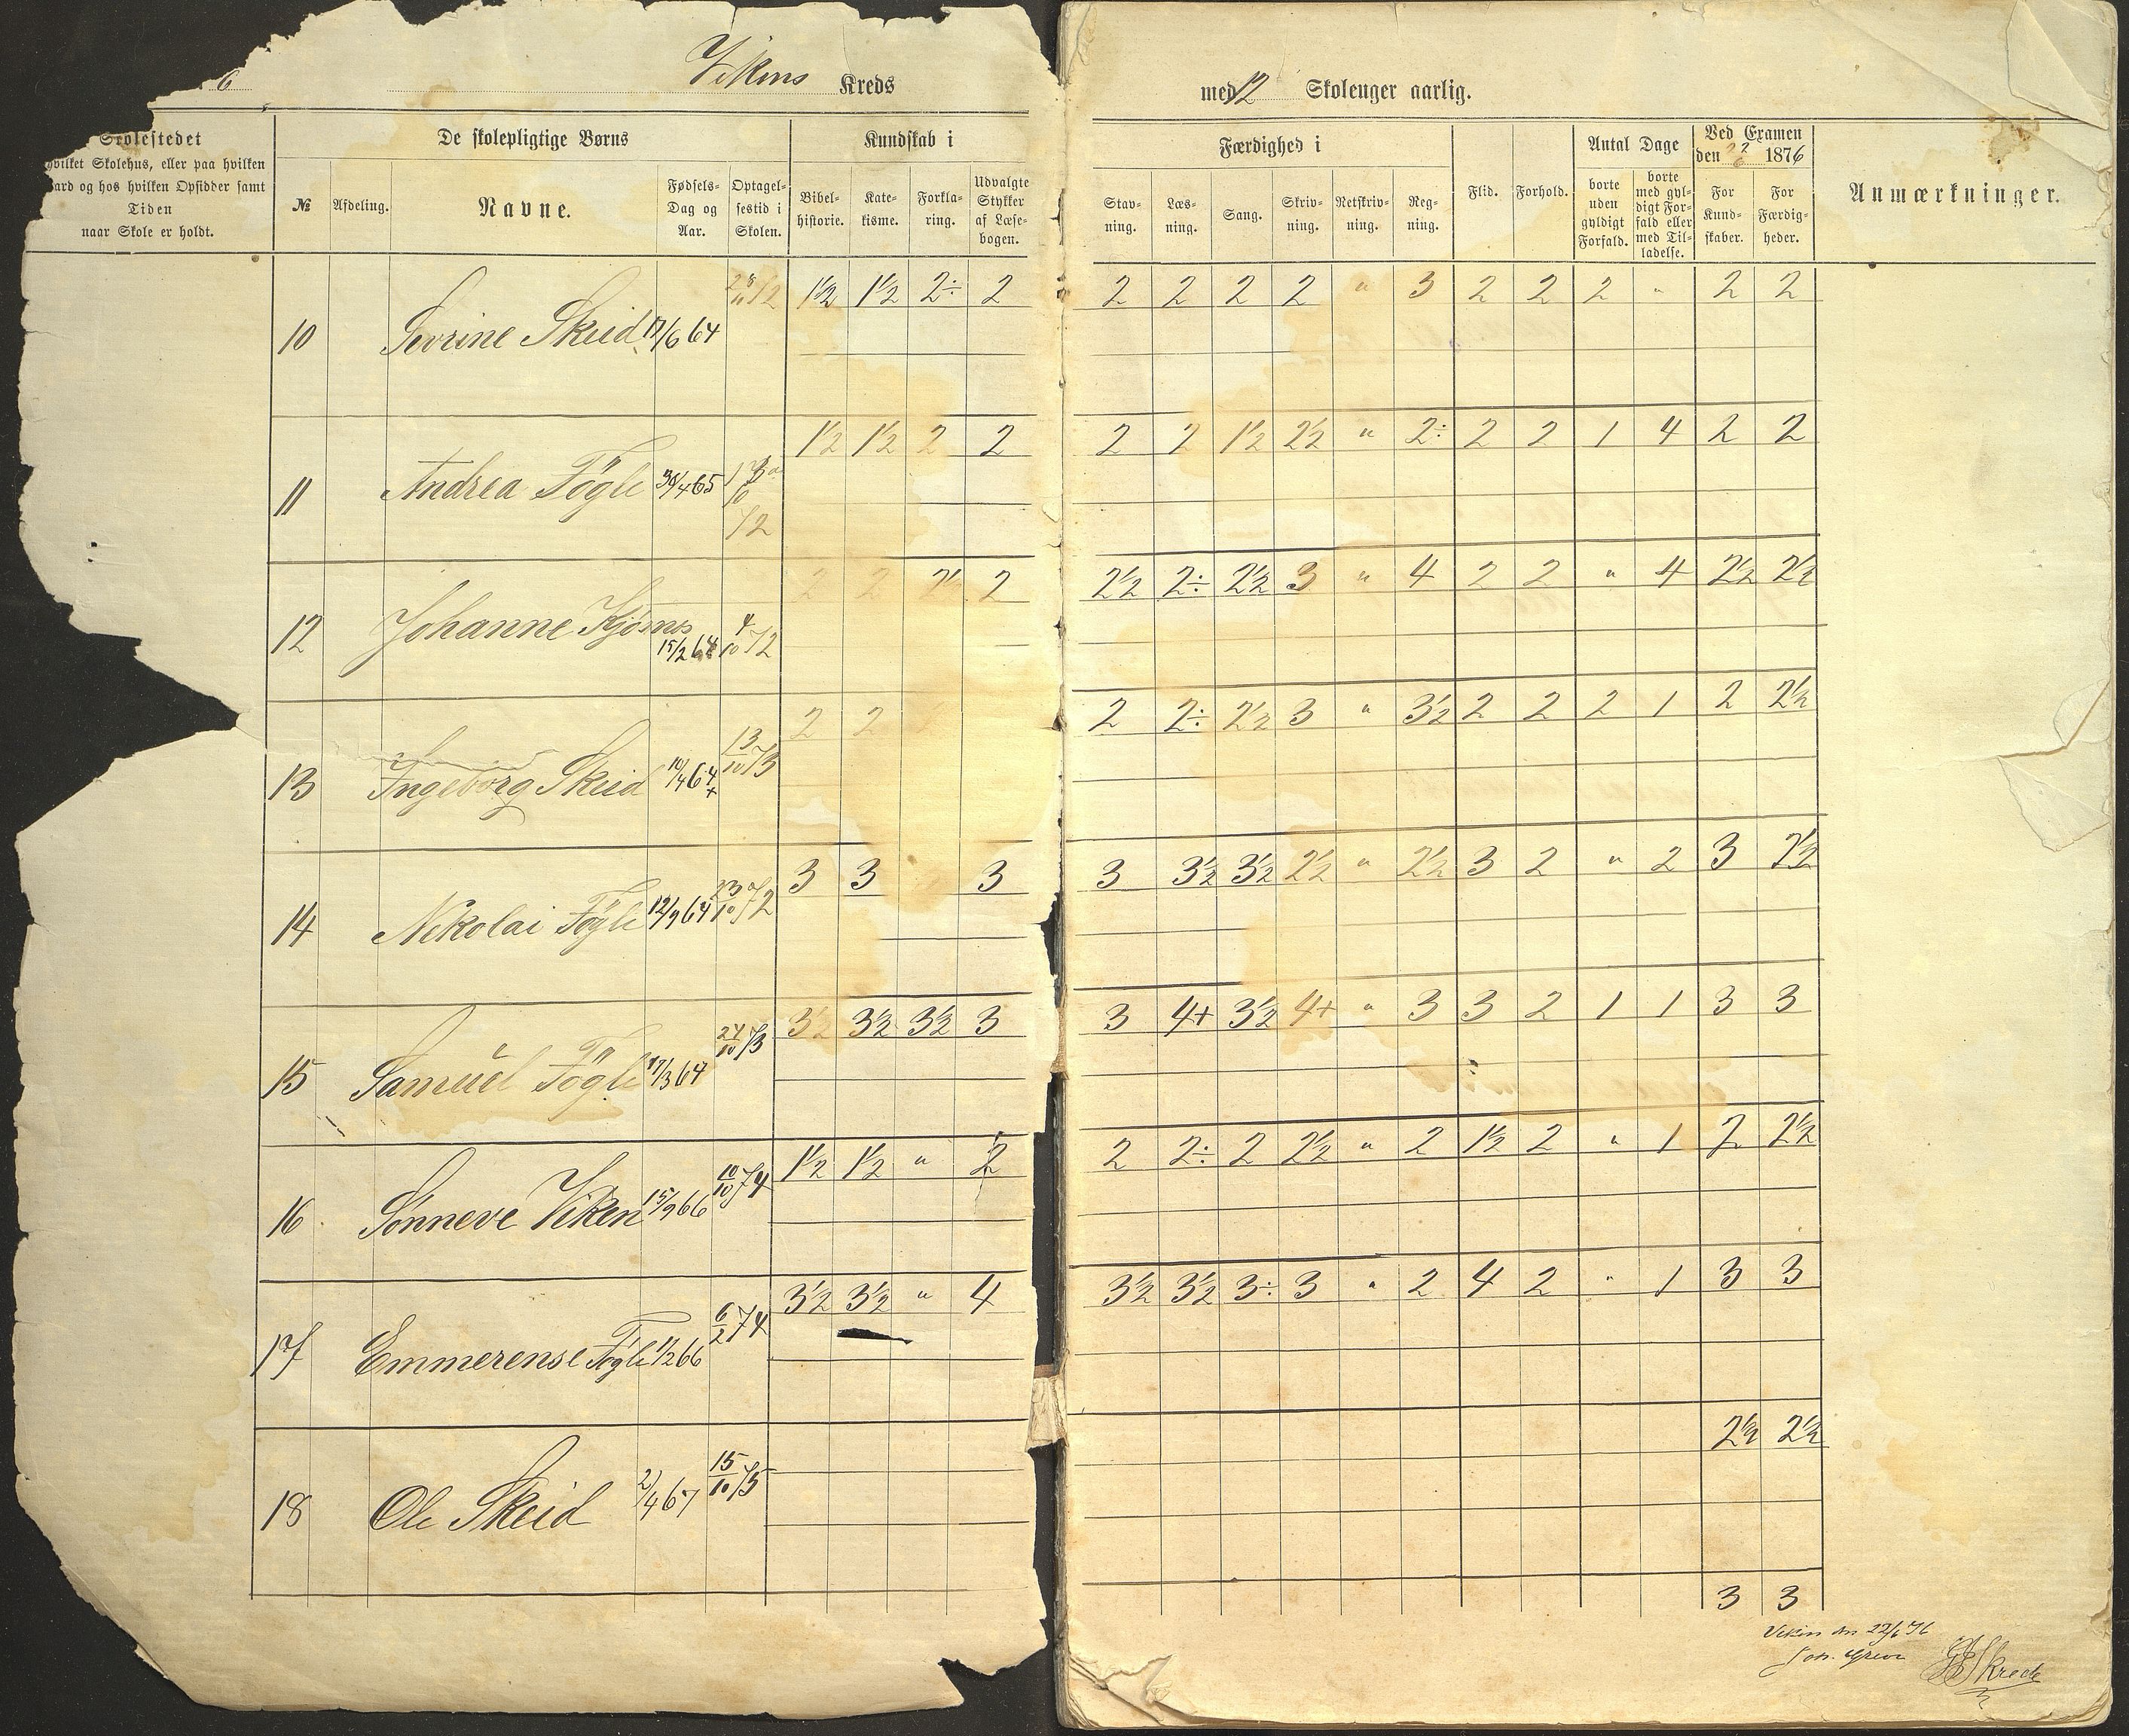 6 Vikens Kreds med 12 Skoleuger aarlig.
Skolestedet
hvilket Skolehus, eller paa hvilken
Gaard og hos hvilken Opsidder samt
Tiden
naar Skole er holdt.
De skolepligtige Børns
№ Afdeling. Navne. Fødsels-Dag og Aar. Optagelsestid i Skolen.
Kundskab i
Bibelhistorie. Katekisme. Forklaring. Udvalgte Stykker af Læsebogen.
Færdighed i
Stavning. Læsning. Sang. Skrivning. Retskrivning. Regning.
Flid. Forhold.
Antal Dage
borte uden gyldigt Forfald. borte med gyldigt Forfald eller med Tilladelse.
Ved Examen
den 22/6 1876
For Kundskaber. For Færdigheder.
Anmærkninger.
10 Sevrine Skeid 17/6 64 72 1½ 1½ 2÷ 2 2 2 2 2 " 3 2 2 2 " 2 2
11 Andrea Fögle 30/4 65 72 1½ 1½ 2 2 2 2 1½ 2½ " 2÷ 2 2 1 4 2 2
12 Johanne 15/2 64 4/10 72 2 2 2½ 2 2½ 2÷ 2½ 3 " 4 2 2 " 4 2½ 2½
13 Ingeborg Skeid 10/4 64 + 13/10 73 2 2 2 2÷ 2½ 3 " 3½ 2 2 2 1 2 2½
14 Nikolai Fögle 12/9 64 23/10 72 3 3 3 3 3½ 3½ 2½ " 2½ 3 2 " 2 3 2½
15 Samuel Fögle 17/3 64 24/10 73 3½ 3½ 3½ 3 3 4+ 3½ 4+ " 3 3 2 1 1 3 3
16 Sønneve Viken 15/9 66 10/10 74 1½ 1½ " 2 2 2÷ 2 2½ " 2 1½ 2 " 1 2 2½
17 Emmerense Fögle 1/2 66 6/2 74 3½ 3½ " 4 3½ 3½ 3÷ 3 " 2 4 2 " 1 3 3
2½ 2½
18 Ole Skeid 2/4 67 15/10 75
3 3
Viken den 22/6 76